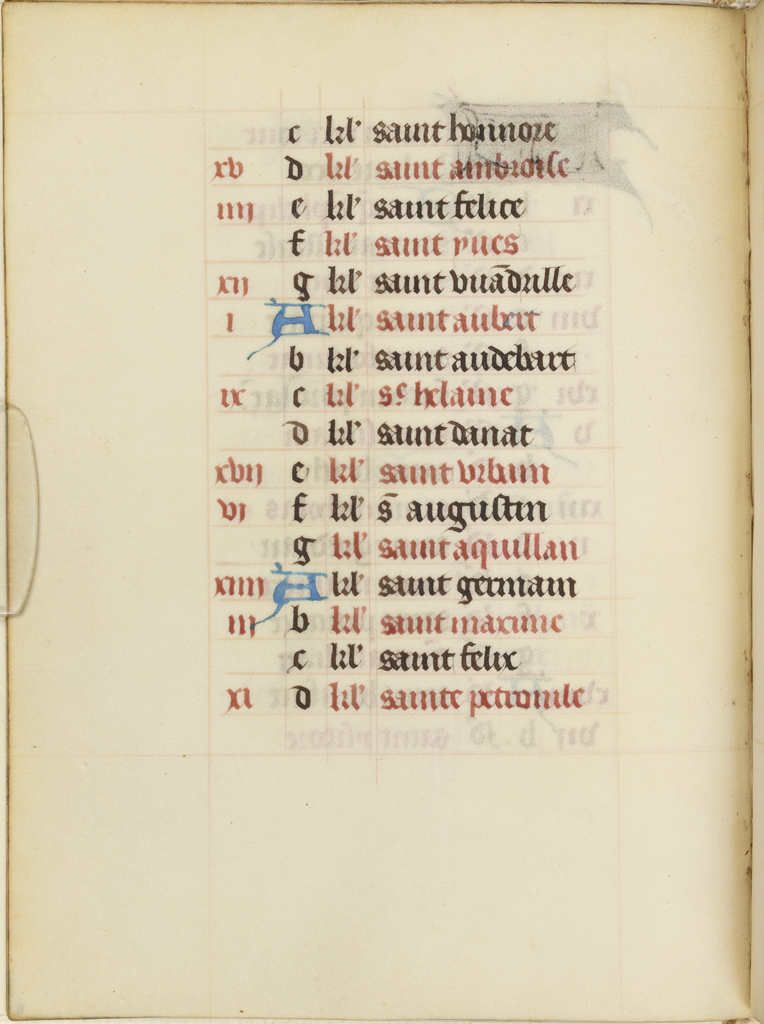 c kl' saint honnore
xv d kl' saint ambroise
iiij e kl' saint felice
f kl' saint yues
xij g kl' saint vuādrille
i A kl' saint aubert
b kl' saint audebart
ix c kl' sᵉ helaine
d kl' saint danat
xvij e kl' saint vrbain
vj f kl' s̄ augustin
g kl' saint aquillan
xiiij A kl' saint germain
iij b kl' saint maxime
c kl' saint felix
xi d kl' sainte petronile